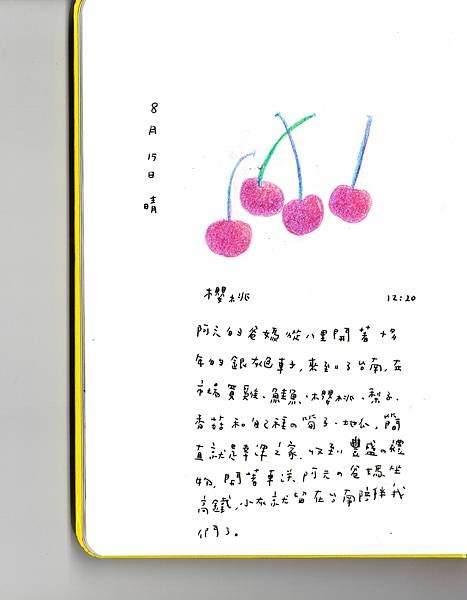 8月15日 晴
櫻桃 12:20
阿元的爸媽從八里開著十多
年的銀灰色車子,來到了台南,在
市場買雞、鮭魚、櫻桃、梨子、
香菇和自己種の筍子、地瓜,簡
直就是之家,收到豐盛の禮
物,開著車送阿元の爸媽坐
高鐵,小灰就留在台南陪伴我
們了。